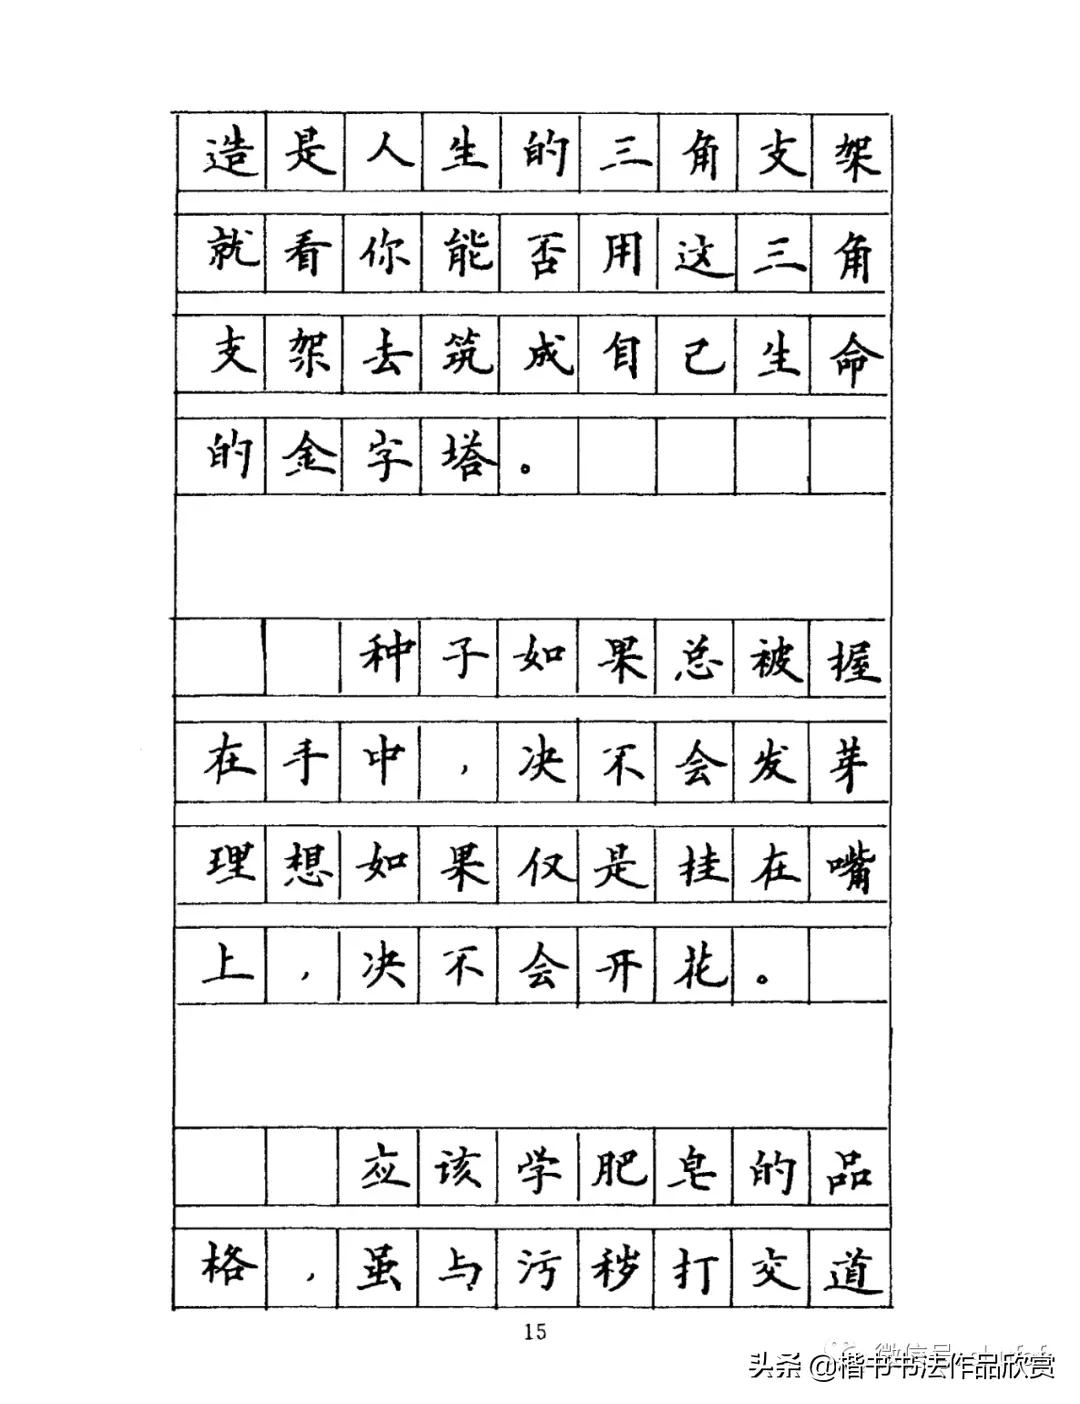 造是人生的三角支架
就看你能否用这三角
支架去筑成自己生命
的金字塔。
种子如果总被握
在手中，决不会发芽
理想如果仅是挂在嘴
上，决不会开花。
应该学肥皂的品
格，虽与污秽打交道
15
微信号:
头条 @楷书书法作品欣赏